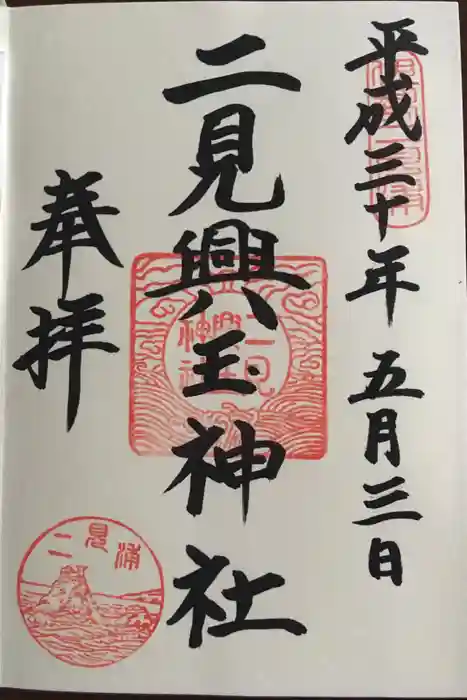 平成三十年五月三日
二見興玉神社
二見興玉神社
奉拝
二見浦